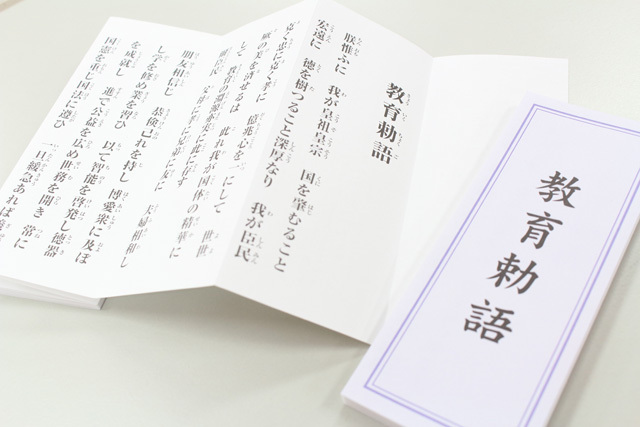 教育勅語
朕惟ふに 我が皇祖皇宗 国を肇むること
宏遠に 徳を樹つること深厚なり 我が臣民
克く忠に克く孝に 億兆心を一にして 世世
厥の美を済せるは 此れ我が国体の精華に
して 教育の淵源亦実に此に存す
爾臣民 父母に孝に兄弟に友に 夫婦相和し
朋友相信じ 恭倹己れを持し 博愛衆に及ぼ
し学を修め業を習ひ 以て智能を啓発し徳器
を成就し 進で公益を広め世務を開き 常に
国憲を重じ国法に遵ひ 一旦緩急あれば
教育勅語